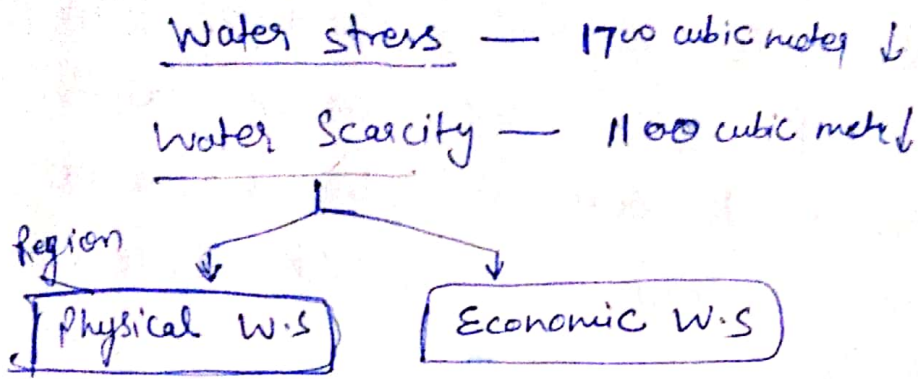 Water stress — 1700 cubic meter ↓
Water Scarcity — 1100 cubic mete ↓
Region
Physical W.S
Economic W.S